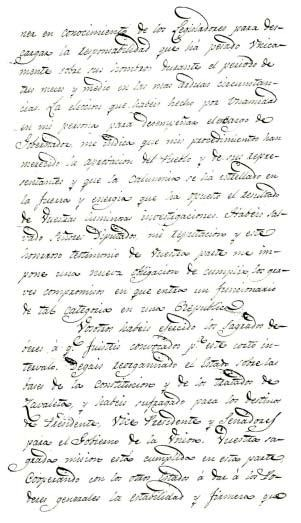 ner en conocimiento de los Legisladores para des-
cargar la responsabilidad que ha pesado unica-
mente sobre mis hombros durante el periodo de
tres meses y medio en las mas arduas circunstan-
cias. La eleccion que habeis hecho por unanimidad
en mi persona para desempeñar el cargo de
Gobernador me indica que mis procedimientos han
merecido la aprobacion del Pueblo y de sus repre-
sentantes y que la calumnia se ha estrellado en
la fuerza y energia que ha opuesto el resultado
de vuestras luminosas investigaciones. Habeis sal-
vado Señores Diputados mi reputacion y este
honroso testimonio de vuestra parte me im-
pone una nueva obligacion de cumplir los gra-
ves compromisos en que entra un funcionario
de tal categoria en una Republica
Vosotros habeis ejercido los sagrados de-
beres á q.e fuisteis convocados p.r este corto in-
tervalo. Dejais reorganizado el Estado sobre las
bases de la Constitucion y de los tratados de
Zavaleta, y habeis sufragado para los destinos
de Presidente, Vice Presidente y Senadores
para el Gobierno de la Union. Vuestra sa-
grada mision está cumplida en esta parte
Cooperando con los otros Estados á dar á los Po-
deres generales la estabilidad y firmeza que